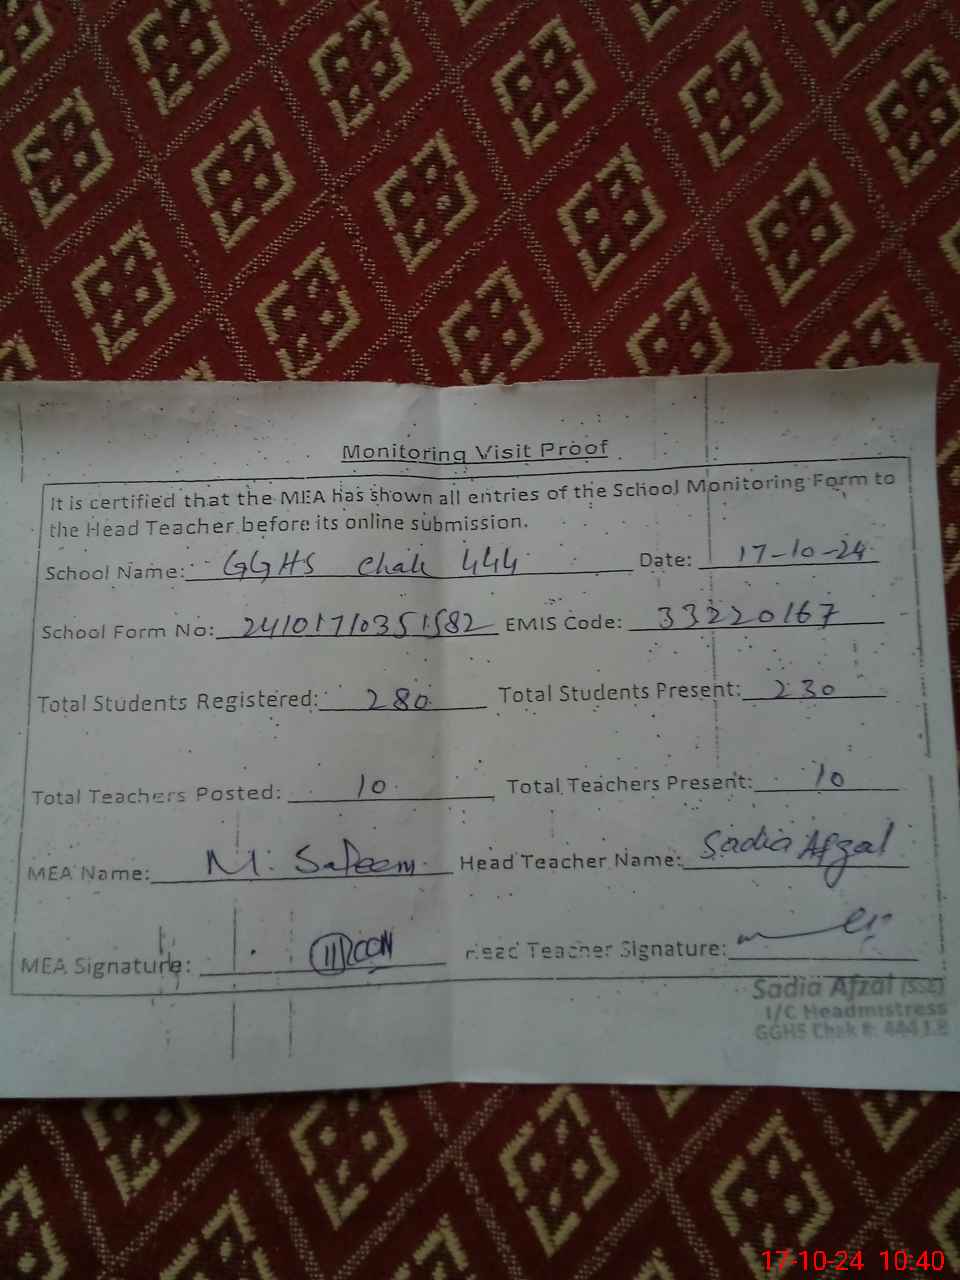 Monitoring Visit Proof
It is certified that the MEA has shown all entries of the School Monitoring Form to
the Head Teacher before its online submission.
School Name: GGHS Chak 444 Date: 17-10-24
School Form No: 24101710351582 EMIS Code: 33220167
Total Students Registered: 280 Total Students Present: 230
Total Teachers Posted: 10 Total Teachers Present: 10
MEA Name: M. Saleem Head Teacher Name: Sadia Afzal
MEA Signature: Head Teacher Signature:
Sadia Afzal (SSE)
I/C Headmistress
GGHS Chak #: 444 J.B
17-10-24 10:40